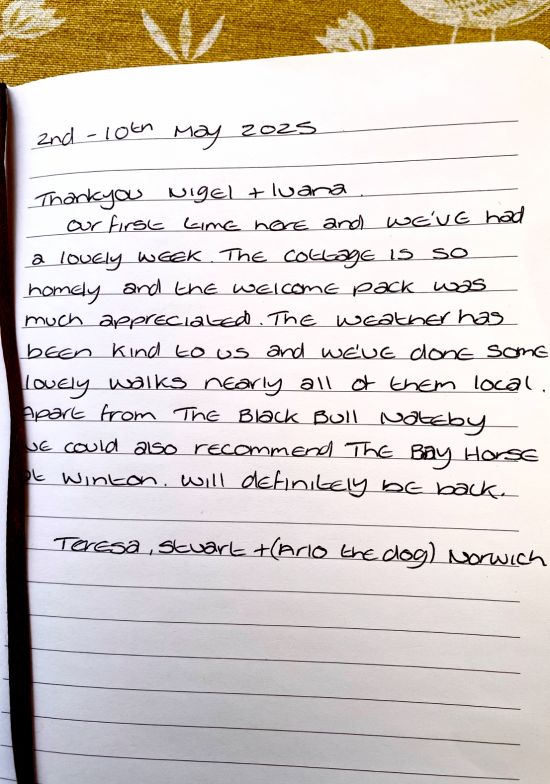 2nd - 10th May 2025
Thankyou Nigel + Ivana.
Our first time here and we've had
a lovely week. The cottage is so
homely and the welcome pack was
much appreciated. The weather has
been kind to us and we've done some
lovely walks nearly all of them local.
Apart from The Black Bull Nateby
we could also recommend The Bay Horse
at Winton. Will definitely be back.
Teresa, Stuart + (Arlo the dog) Norwich